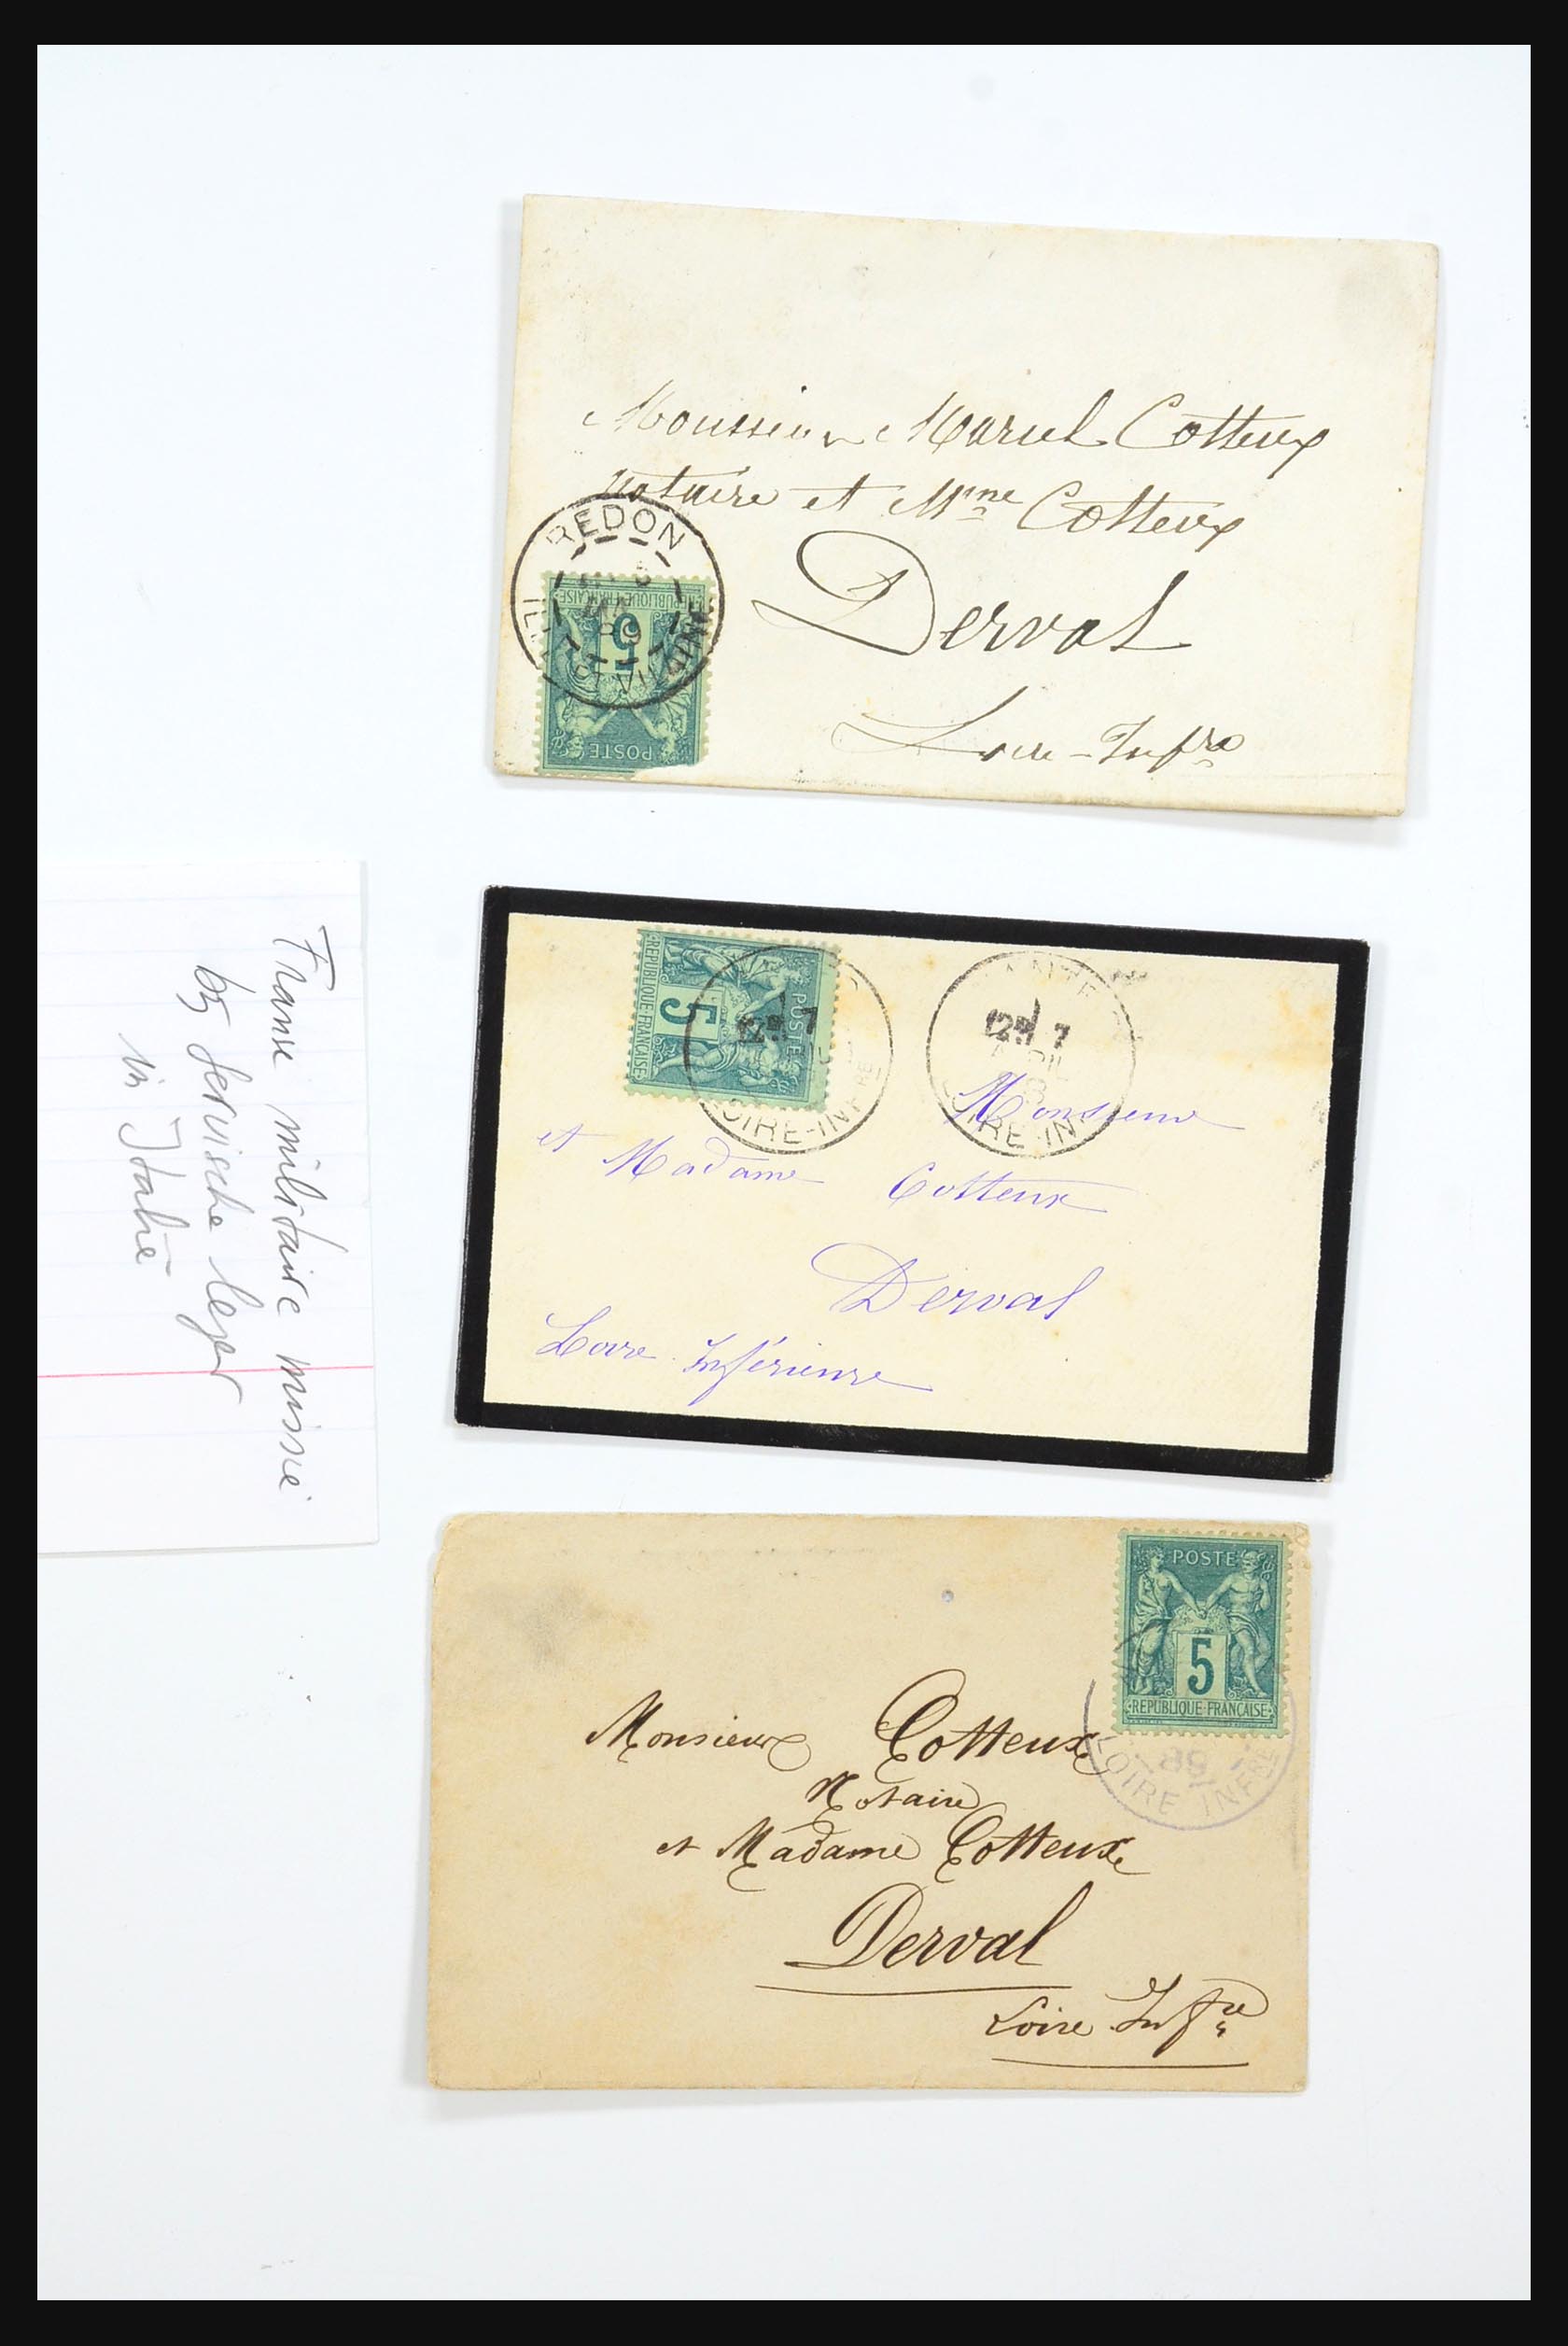 Monsieur Marcel Cotteux
notaire et Mme Cotteux
Derval
Loire-Infre
REDON
89
ILLE-ET-VILAINE
REPUBLIQUE FRANCAISE
5
POSTE
POSTE
5
REPUBLIQUE FRANCAISE
12E 7
LOIRE-INFRE
12E 7
LOIRE-INF
Monsieur
et Madame Cotteux
Derval
Loire Inférieure
Franse militaire missie
bij Servische leger
in Italië
POSTE
5
REPUBLIQUE FRANCAISE
89
LOIRE INFRE
Monsieur Cotteux
Notaire
et Madame Cotteux
Derval
Loire Infre